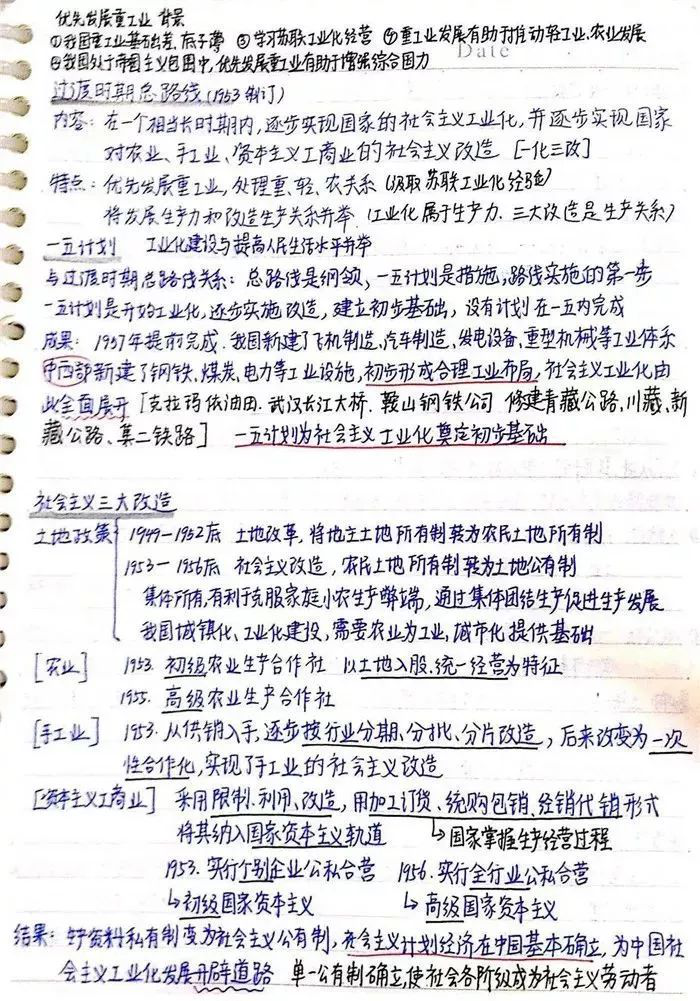 优先发展重工业 背景
①我国重工业基础差、底子薄 ②学习苏联工业化经营 ③重工业发展有助于推动轻工业、农业发展
Date
④我国处于帝国主义包围中,优先发展重工业有助于增强综合国力
过渡时期总路线(1953制订)
内容:在一个相当长时期内,逐步实现国家的社会主义工业化,并逐步实现国家
对农业、手工业、资本主义工商业的社会主义改造 [一化三改]
特点:优先发展重工业,处理重、轻、农关系(汲取苏联工业化经验)
将发展生产力和改造生产关系并举(工业化属于生产力.三大改造是生产关系)
一五计划 工业化建设与提高人民生活水平并举
与过渡时期总路线关系:总路线是纲领,一五计划是措施,路线实施的第一步
一五计划是开始工业化,逐步实施改造,建立初步基础,没有计划在一五内完成
成果:1957年提前完成.我国新建了飞机制造、汽车制造、发电设备、重型机械等工业体系
中西部新建了钢铁、煤炭、电力等工业设施,初步形成合理工业布局,社会主义工业化由
此全面展开 [克拉玛依油田.武汉长江大桥.鞍山钢铁公司 修建青藏公路、川藏、新
藏公路、集二铁路] 一五计划为社会主义工业化奠定初步基础
社会主义三大改造
土地政策 1949—1952底 土地改革,将地主土地所有制转为农民土地所有制
1953—1956底 社会主义改造,农民土地所有制转为土地公有制
集体所有,有利于克服家庭小农生产弊端,通过集体团结生产促进生产发展
我国城镇化、工业化建设,需要农业为工业,城市化提供基础
[农业] 1953.初级农业生产合作社 以土地入股、统一经营为特征
1955.高级农业生产合作社
[手工业] 1953.从供销入手,逐步按行业分期、分批、分片改造,后来改变为一次
性合作化,实现了手工业的社会主义改造
[资本主义工商业] 采用限制、利用、改造,用加工订货、统购包销、经销代销形式
将其纳入国家资本主义轨道 ↳国家掌握生产经营过程
1953.实行个别企业公私合营 1956.实行全行业公私合营
↳初级国家资本主义 ↳高级国家资本主义
结果:生产资料私有制变为社会主义公有制,社会主义计划经济在中国基本确立,为中国社
会主义工业化发展开辟道路 单一公有制确立,使社会各阶级成为社会主义劳动者